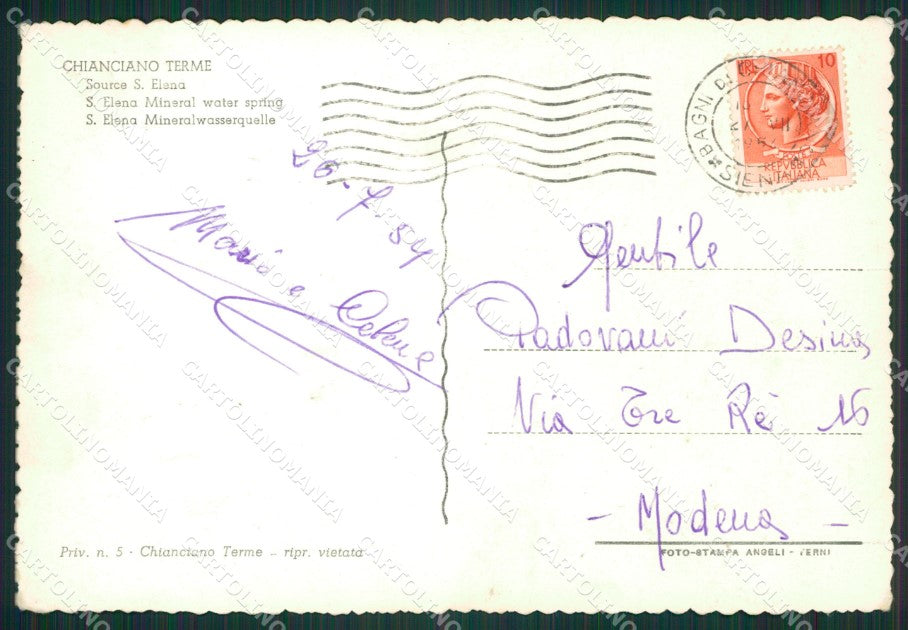 CHIANCIANO TERME
Source S. Elena
S. Elena Mineral water spring
S. Elena Mineralwasserquelle
26-7 54
Maria e
BAGNI DI
SIENA
LIRE 10
POSTE
REPVBBLICA
ITALIANA
Gentile
Padovani Desina
Via Tre Re 16
- Modena -
Priv. n. 5 - Chianciano Terme - ripr. vietata
FOTO-STAMPA ANGELI - TERNI
CARTOLINOMANIA